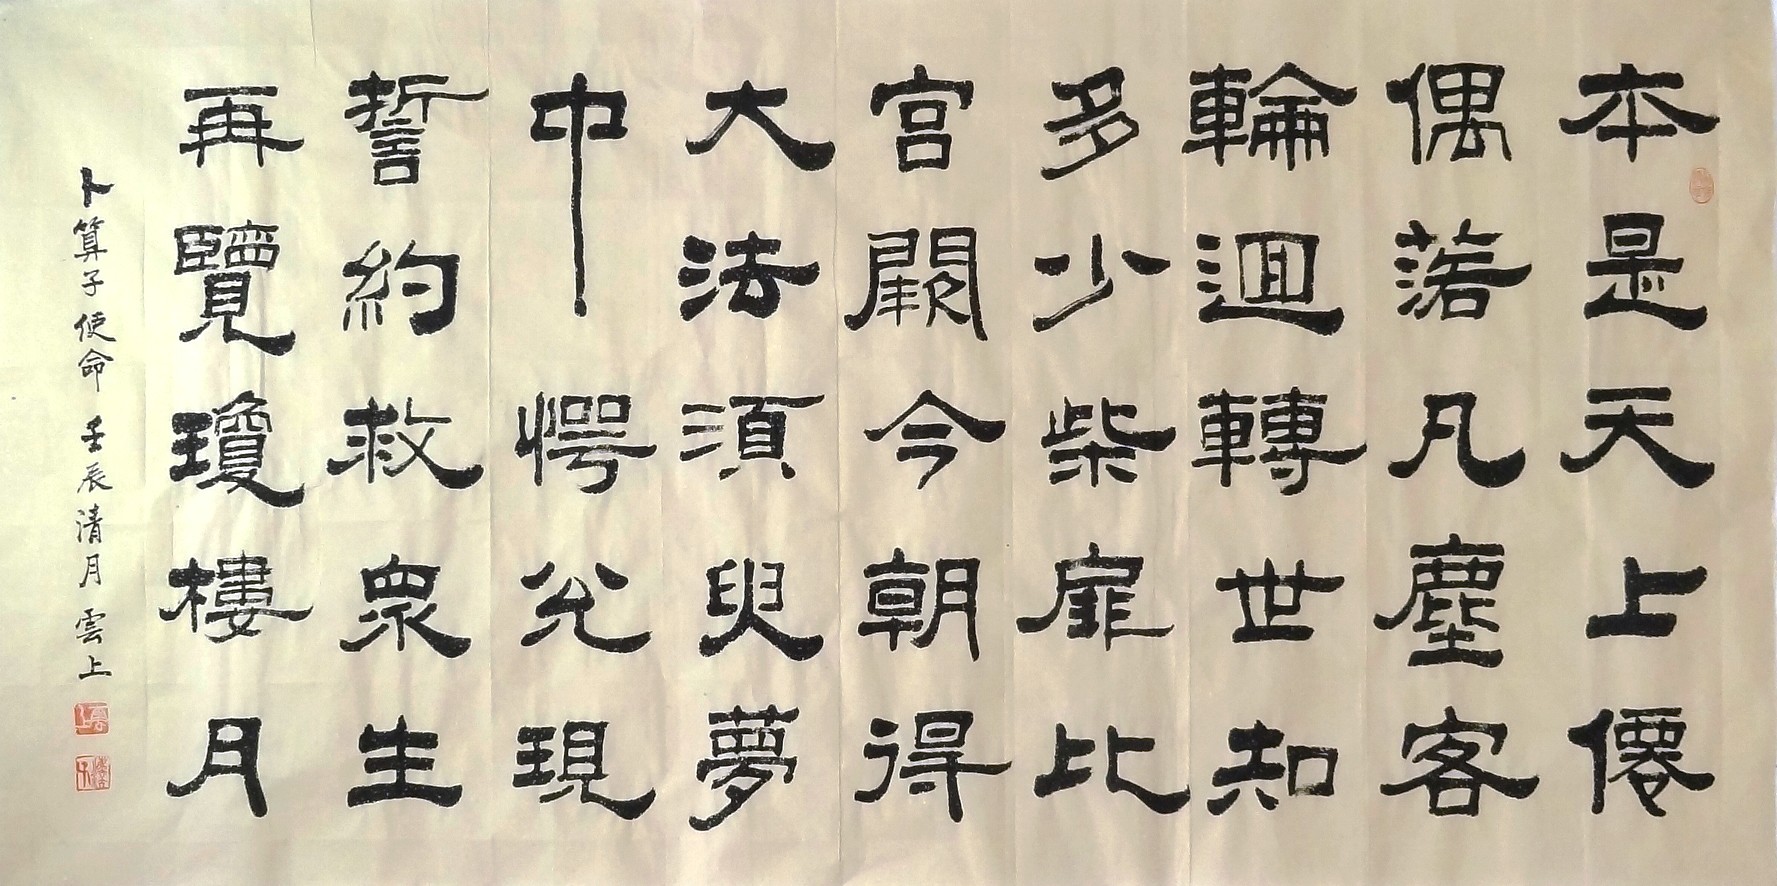 本是天上僊
偶落凡塵客
輪迴轉世知
多少柴扉比
宮闕今朝得
大法須臾夢
中愕兌現
誓約救眾生
再覽瓊樓月
卜算子 使命 壬辰清月 雲上